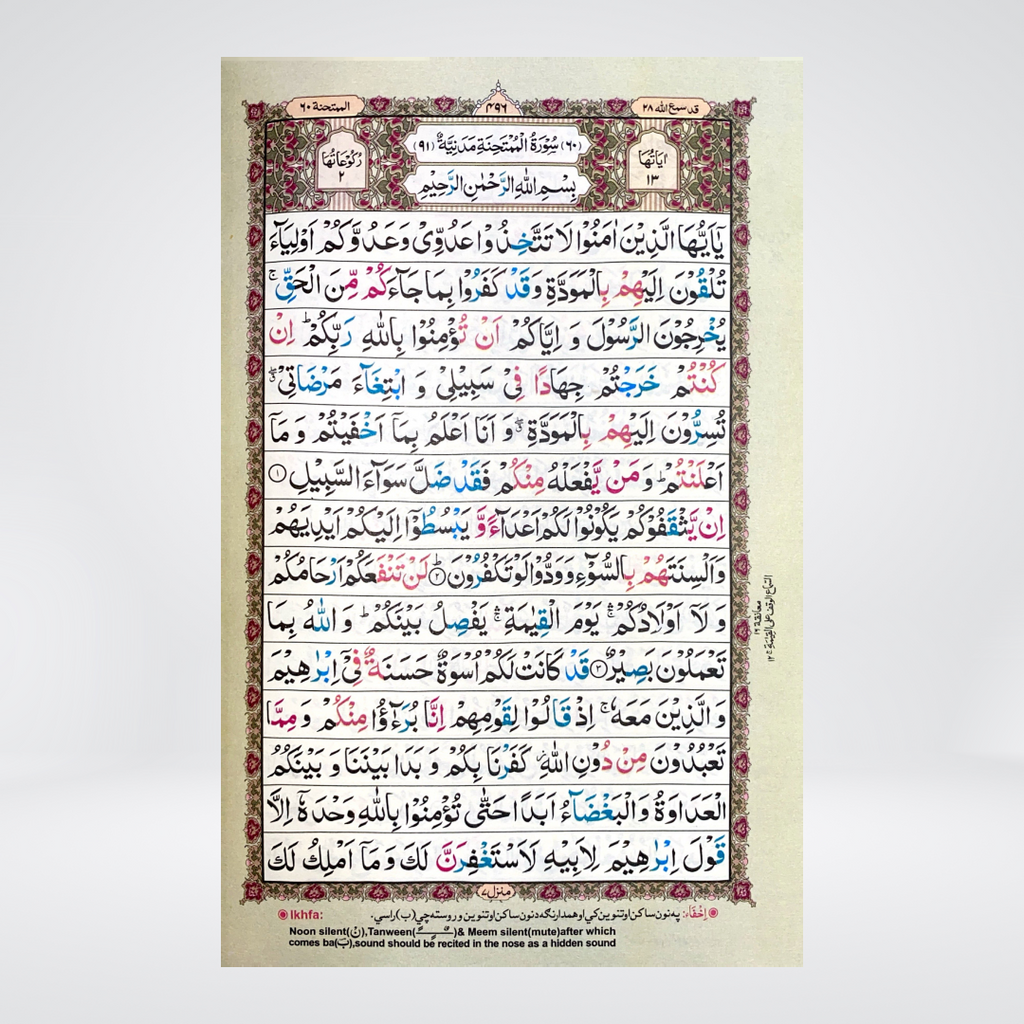 قد سمع الله ٢٨
٤٩٦
الممتحنة ٦٠
اٰيَاتُهَا ١٣
(٦٠) سُوْرَةُ الْمُمْتَحِنَةِ مَدَنِيَّةٌ (٩١)
رُكُوْعَاتُهَا ٢
بِسْمِ اللّٰهِ الرَّحْمٰنِ الرَّحِيْمِ
يٰۤاَيُّهَا الَّذِيْنَ اٰمَنُوْا لَا تَتَّخِذُوْا عَدُوِّىْ وَعَدُوَّكُمْ اَوْلِيَآءَ
تُلْقُوْنَ اِلَيْهِمْ بِالْمَوَدَّةِ وَقَدْ كَفَرُوْا بِمَا جَآءَكُمْ مِّنَ الْحَقِّ ۚ
يُخْرِجُوْنَ الرَّسُوْلَ وَ اِيَّاكُمْ اَنْ تُؤْمِنُوْا بِاللّٰهِ رَبِّكُمْ ؕ اِنْ
كُنْتُمْ خَرَجْتُمْ جِهَادًا فِىْ سَبِيْلِىْ وَ ابْتِغَآءَ مَرْضَاتِىْ ۖ
تُسِرُّوْنَ اِلَيْهِمْ بِالْمَوَدَّةِ ۖ وَ اَنَا اَعْلَمُ بِمَاۤ اَخْفَيْتُمْ وَ مَاۤ
اَعْلَنْتُمْ ؕ وَ مَنْ يَّفْعَلْهُ مِنْكُمْ فَقَدْ ضَلَّ سَوَآءَ السَّبِيْلِ ١
اِنْ يَّثْقَفُوْكُمْ يَكُوْنُوْا لَكُمْ اَعْدَآءً وَّ يَبْسُطُوْۤا اِلَيْكُمْ اَيْدِيَهُمْ
وَاَلْسِنَتَهُمْ بِالسُّوْٓءِ وَوَدُّوْا لَوْ تَكْفُرُوْنَ ؕ ٢ لَنْ تَنْفَعَكُمْ اَرْحَامُكُمْ
وَ لَاۤ اَوْلَادُكُمْ ۛۚ يَوْمَ الْقِيٰمَةِ ۛۚ يَفْصِلُ بَيْنَكُمْ ؕ وَ اللّٰهُ بِمَا
تَعْمَلُوْنَ بَصِيْرٌ ٣ قَدْ كَانَتْ لَكُمْ اُسْوَةٌ حَسَنَةٌ فِىْۤ اِبْرٰهِيْمَ
وَ الَّذِيْنَ مَعَهٗ ۚ اِذْ قَالُوْا لِقَوْمِهِمْ اِنَّا بُرَءٰٓؤُا مِنْكُمْ وَ مِمَّا
تَعْبُدُوْنَ مِنْ دُوْنِ اللّٰهِ ؗ كَفَرْنَا بِكُمْ وَ بَدَا بَيْنَنَا وَ بَيْنَكُمُ
الْعَدَاوَةُ وَالْبَغْضَآءُ اَبَدًا حَتّٰى تُؤْمِنُوْا بِاللّٰهِ وَحْدَهٗۤ اِلَّا
قَوْلَ اِبْرٰهِيْمَ لِاَبِيْهِ لَاَسْتَغْفِرَنَّ لَكَ وَ مَاۤ اَمْلِكُ لَكَ
منزل ٧
اِخْفَاء: په نون ساكن او تنوين كي او همدارنگه د نون ساكن او تنوين وروسته چي (ب) راسي.
Ikhfa:
Noon silent(نْ),Tanween(ـًـٍـٌ)& Meem silent(mute)after which
comes ba(بَ),sound should be recited in the nose as a hidden sound